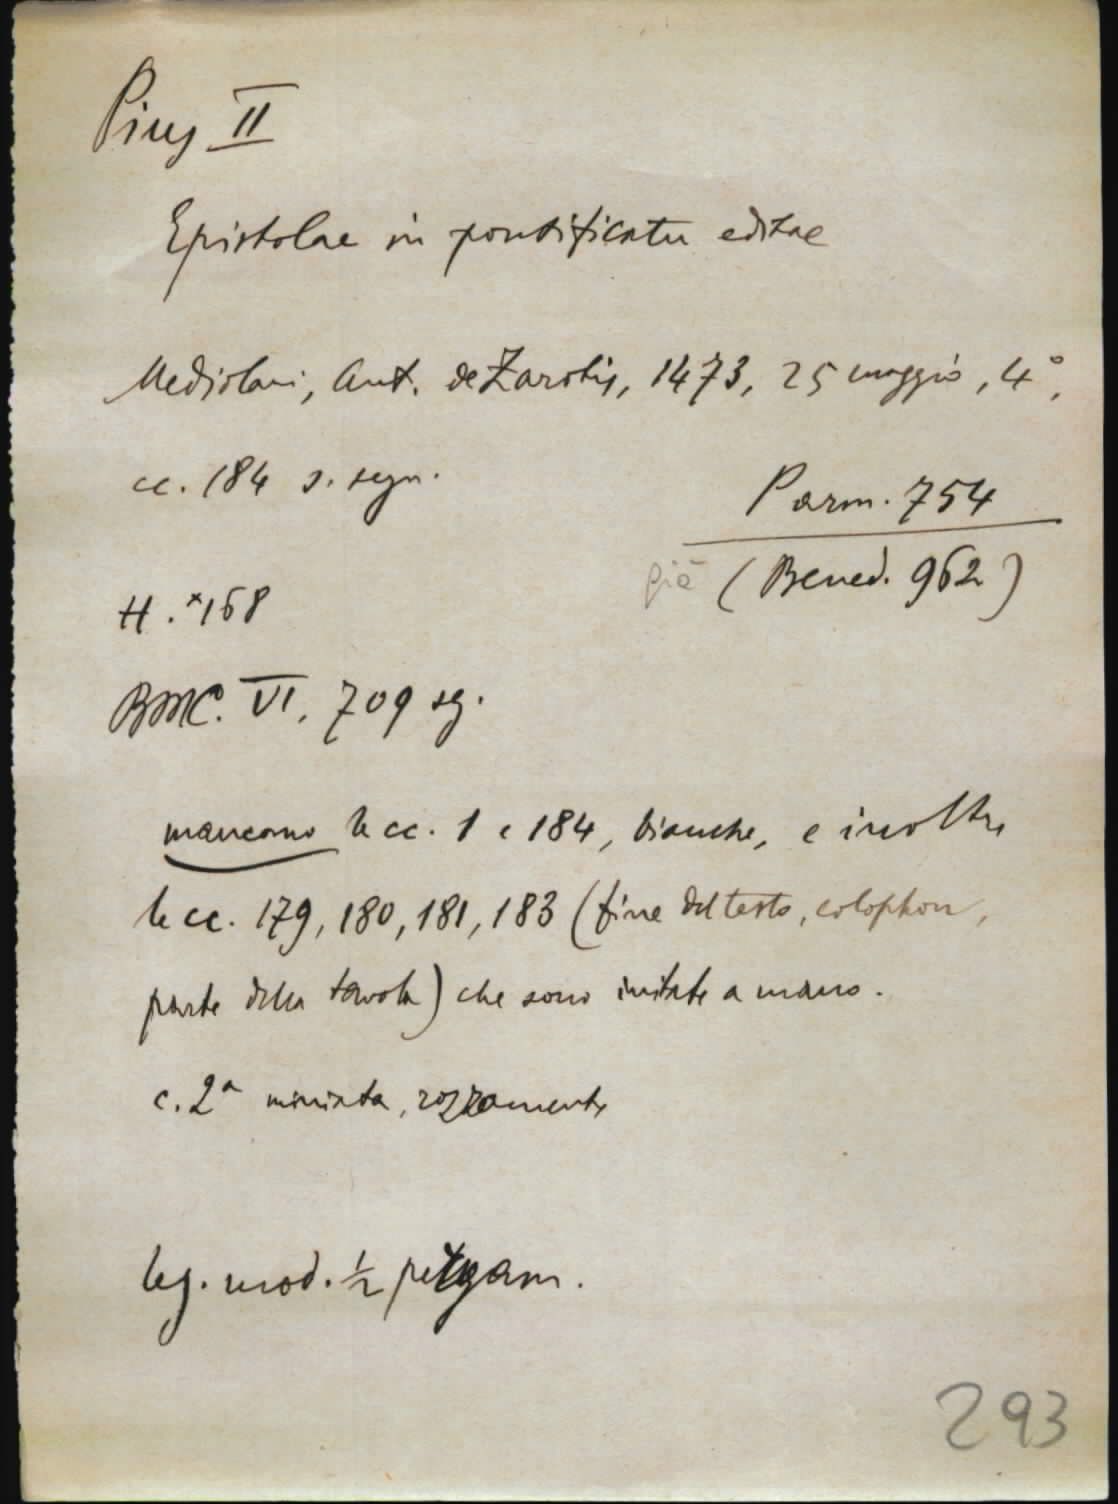 Pius II
Epistolae in pontificatu editae
Mediolani, Ant. de Zarotis, 1473, 25 maggio, 4°,
cc. 184 s. segn.
Parm. 754
già (Bened. 962)
H. *168
BMC. VI, 709 sg.
mancano le cc. 1 e 184, bianche, e inoltre
le cc. 179, 180, 181, 183 (fine del testo, colophon,
parte della tavola) che sono imitate a mano.
c. 2ª miniata, rozzamente
leg. mod. ½ pergam.
293